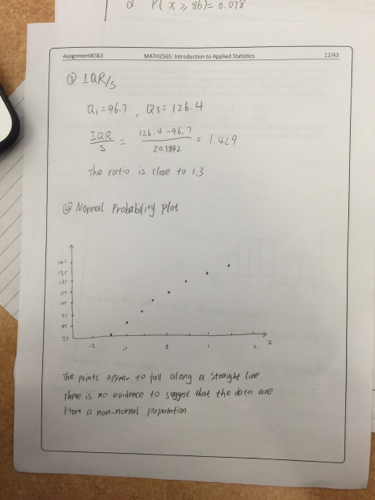 P(x ≥ 86) = 0.078
Assignment#2&3 MATH2565: Introduction to Applied Statistics 12/43
③ IQR/s
Q₁ = 96.7 , Q3 = 126.4
IQR/S = 126.4 - 96.7 / 20.7892 = 1.429
The ratio is close to 1.3
④ Normal Probability plot
-2 -1 0 1 2 z
The points appear to fall along a straight line
There is no evidence to suggest that the data are
from a non-normal population